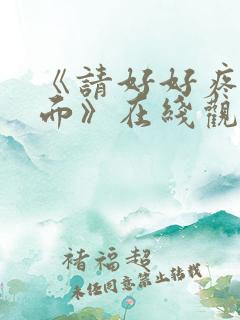 《請好好疼
而》在綫觀
褚福超
未经同意禁止转载